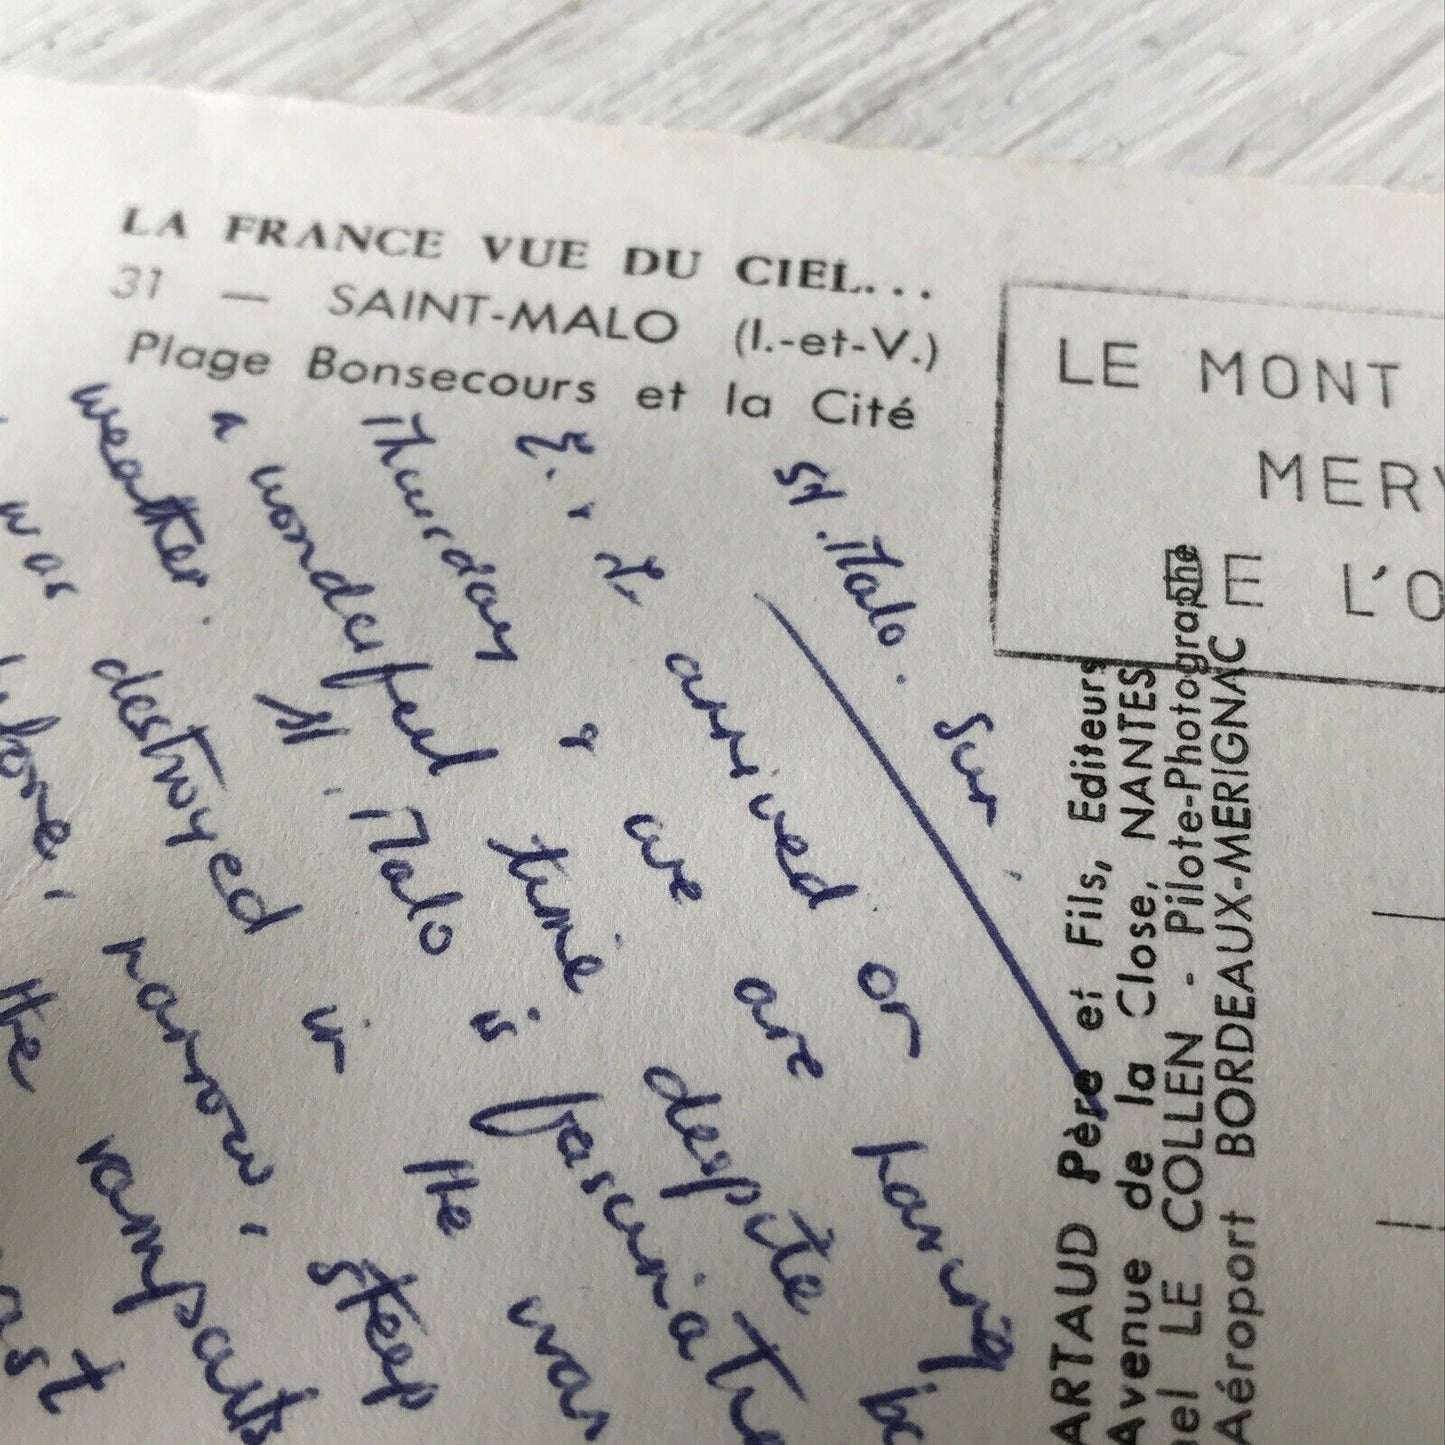 LA FRANCE VUE DU CIEL...
31 — SAINT-MALO (I.-et-V.)
Plage Bonsecours et la Cité
St. Malo. Sun.
E. & I. arrived on
Thursday & are having
a wonderful time despite
weather. St. Malo is fascinating
was destroyed in the war
narrow, steep
the ramparts
LE MONT
MERV
E L'O
ARTAUD Père et Fils, Editeurs
Avenue de la Close, NANTES
el LE COLLEN - Pilote-Photographe
Aéroport BORDEAUX-MERIGNAC